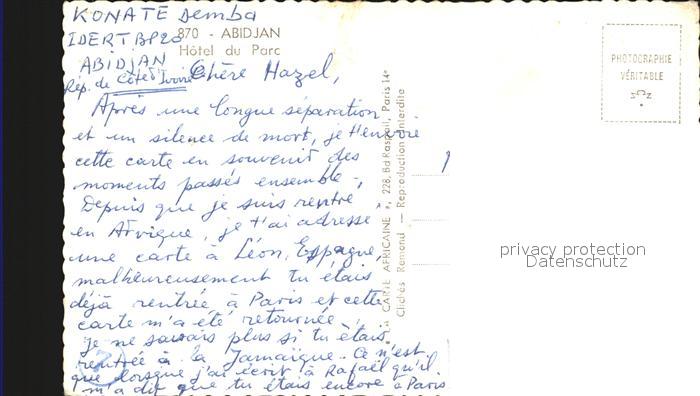 KONATE Demba
IDERT BP20
ABIDJAN
Rép. de Côte d'Ivoire
870 - ABIDJAN
Hôtel du Parc
Chère Hazel,
Après une longue séparation
et un silence de mort, je t'envoie
cette carte en souvenir des
moments passés ensemble.
Depuis que je suis rentré
en Afrique, je t'ai adressé
une carte à Léon, Espagne,
malheureusement tu étais
déjà rentrée à Paris et cette
carte m'a été retournée.
je ne savais plus si tu étais
rentrée à la Jamaïque. Ce n'est
que lorsque j'ai écrit à Rafaël qu'il
m'a dit que tu étais encore à Paris
LA CARTE AFRICAINE », 228, Bd Raspail, Paris 14e
Clichés Remond — Reproduction interdite
PHOTOGRAPHIE
VÉRITABLE
privacy protection
Datenschutz